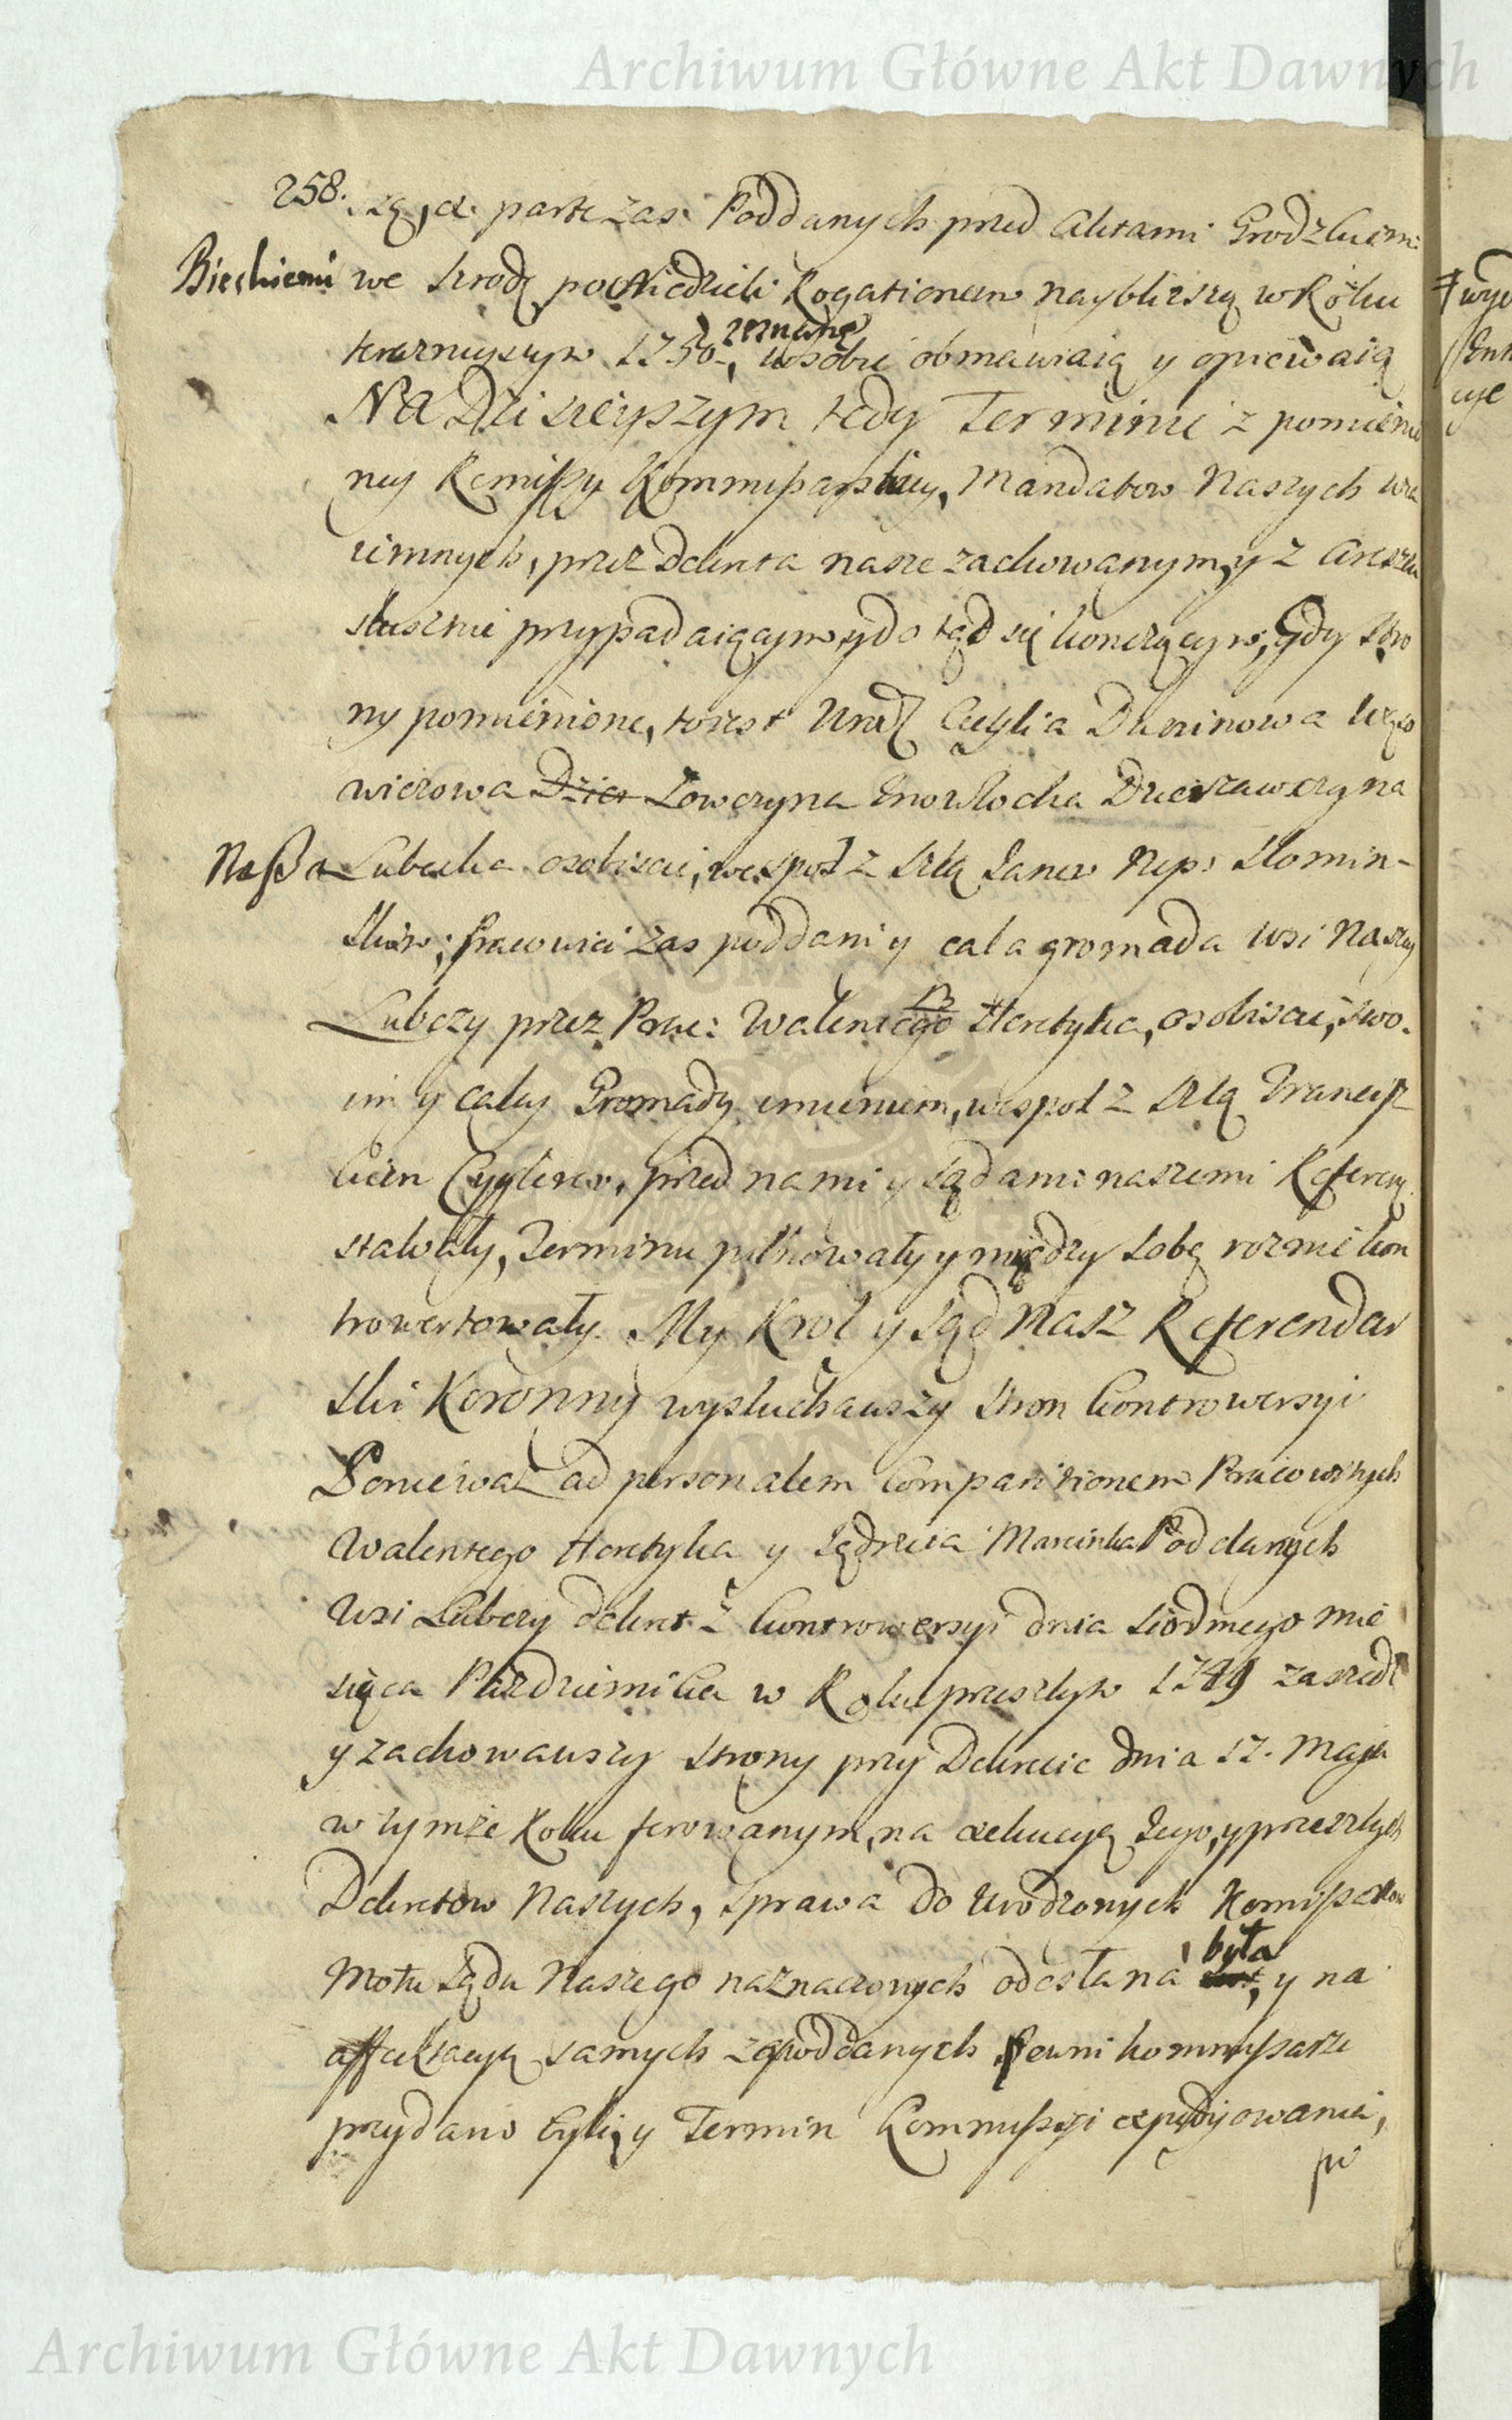 Archiwum Główne Akt Dawnych
258. są, a parte zas Poddanych przed Aktami Grodzkiemi
Bieckiemi we Srodę po Niedzieli Rogationem naybliższą w Roku
teraznieyszym 1750, zeznane w sobie obmawiaią y opiewaią
Na Dzisieyszym tedy Terminie z pomienio
ney Remissy Kommissarskiey, Mandatow Naszych wza
iemnych, przez Dekreta nasze zachowanym, y z Aresztu
słusznie przypadaiącym, y do tąd się konczącym, Gdy Stro
ny pomienione, to iest Urodz Cecylia Duninowa Wąso
wiczowa Dzier Łowczyna Inowłocka Dzierzawczyna
Nassa Lubecka osobiscie, wespoł z Szltą Janem Nep: Słomin-
skim; Pracowici zas poddani y cała gromada wsi Naszey
Lubczy przez Prac: Walentego Heretyka, osobiscie, swo-
im y całey Gromady imieniem, wespoł z Szltą Francisz
kiem Cyglerem, przed nami y sądami naszemi Referen:
stawały, Terminu pilnowały y między sobą roznie kon
trowertowały. My Krol y Sąd Nasz Referendar
ski Koronny wysłuchawszy stron kontrowersyi
Poniewaz ad personalem Comparitionem Pracowitych
Walentego Heretyka y Jędrzeia Marcinka Poddanych
Wsi Lubczy dekret z kontrowersyi dnia siodmego mie
siąca Pazdziernika w Roku przeszłym 1749 zaszedł
y zachowawszy strony przy Dekrecie dnia 12. Maja
w tymze Roku ferowanym, na exekucyą Jego, y przeszłych
Dekretow Naszych, sprawa do Urodzonych Komissarzow
Motu Sądu Naszego naznaczonych odesłana była, y na
affektacyą samych ze poddanych pewni kommissarze
przydano byli, y Termin Kommissyi expedyowania,
po
Archiwum Główne Akt Dawnych